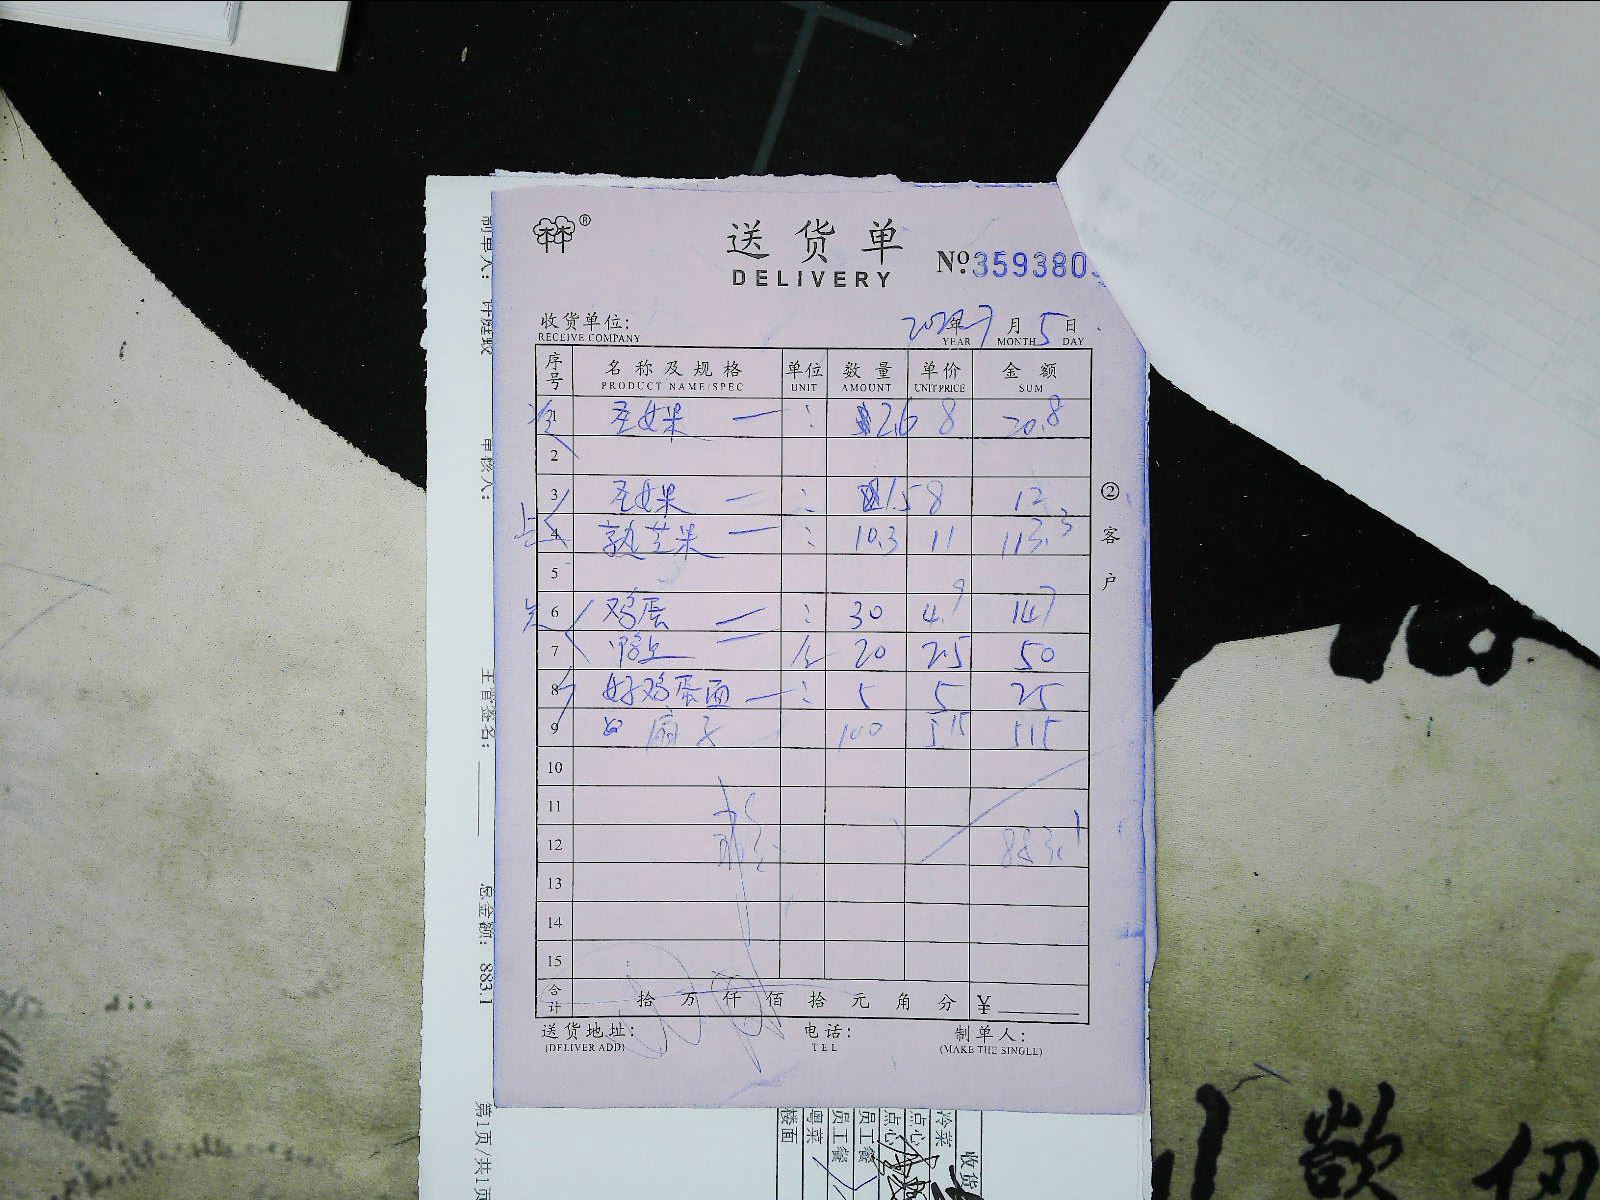 林®
送货单
DELIVERY
№ 359380
收货单位: 年 7 月 5 日
RECEIVE COMPANY YEAR MONTH DAY
序号 名称及规格 单位 数量 单价 金额
PRODUCT NAME/SPEC UNIT AMOUNT UNIT PRICE SUM
1 圣女果 — : 2.6 8 20.8
2
3 圣女果 — : 1.5 8 12
4 熟芒果 — : 10.3 11 113.3
5
6 鸡蛋 — : 30 4.9 147
7 20 2.5 50
8 好鸡蛋面 — : 5 5 25
9 扇子 100 5.15 515
10
11
12 883.1
13
14
15
合计 拾 万 仟 佰 拾 元 角 分 ¥
送货地址: 电话: 制单人:
(DELIVER ADD) TEL (MAKE THE SINGLE)
②客户
制单人:
审核人:
主管签名:
总金额: 883.1
第1页/共1页
收货
冷菜
点心
点心
员工餐
员工餐
粤菜
楼面